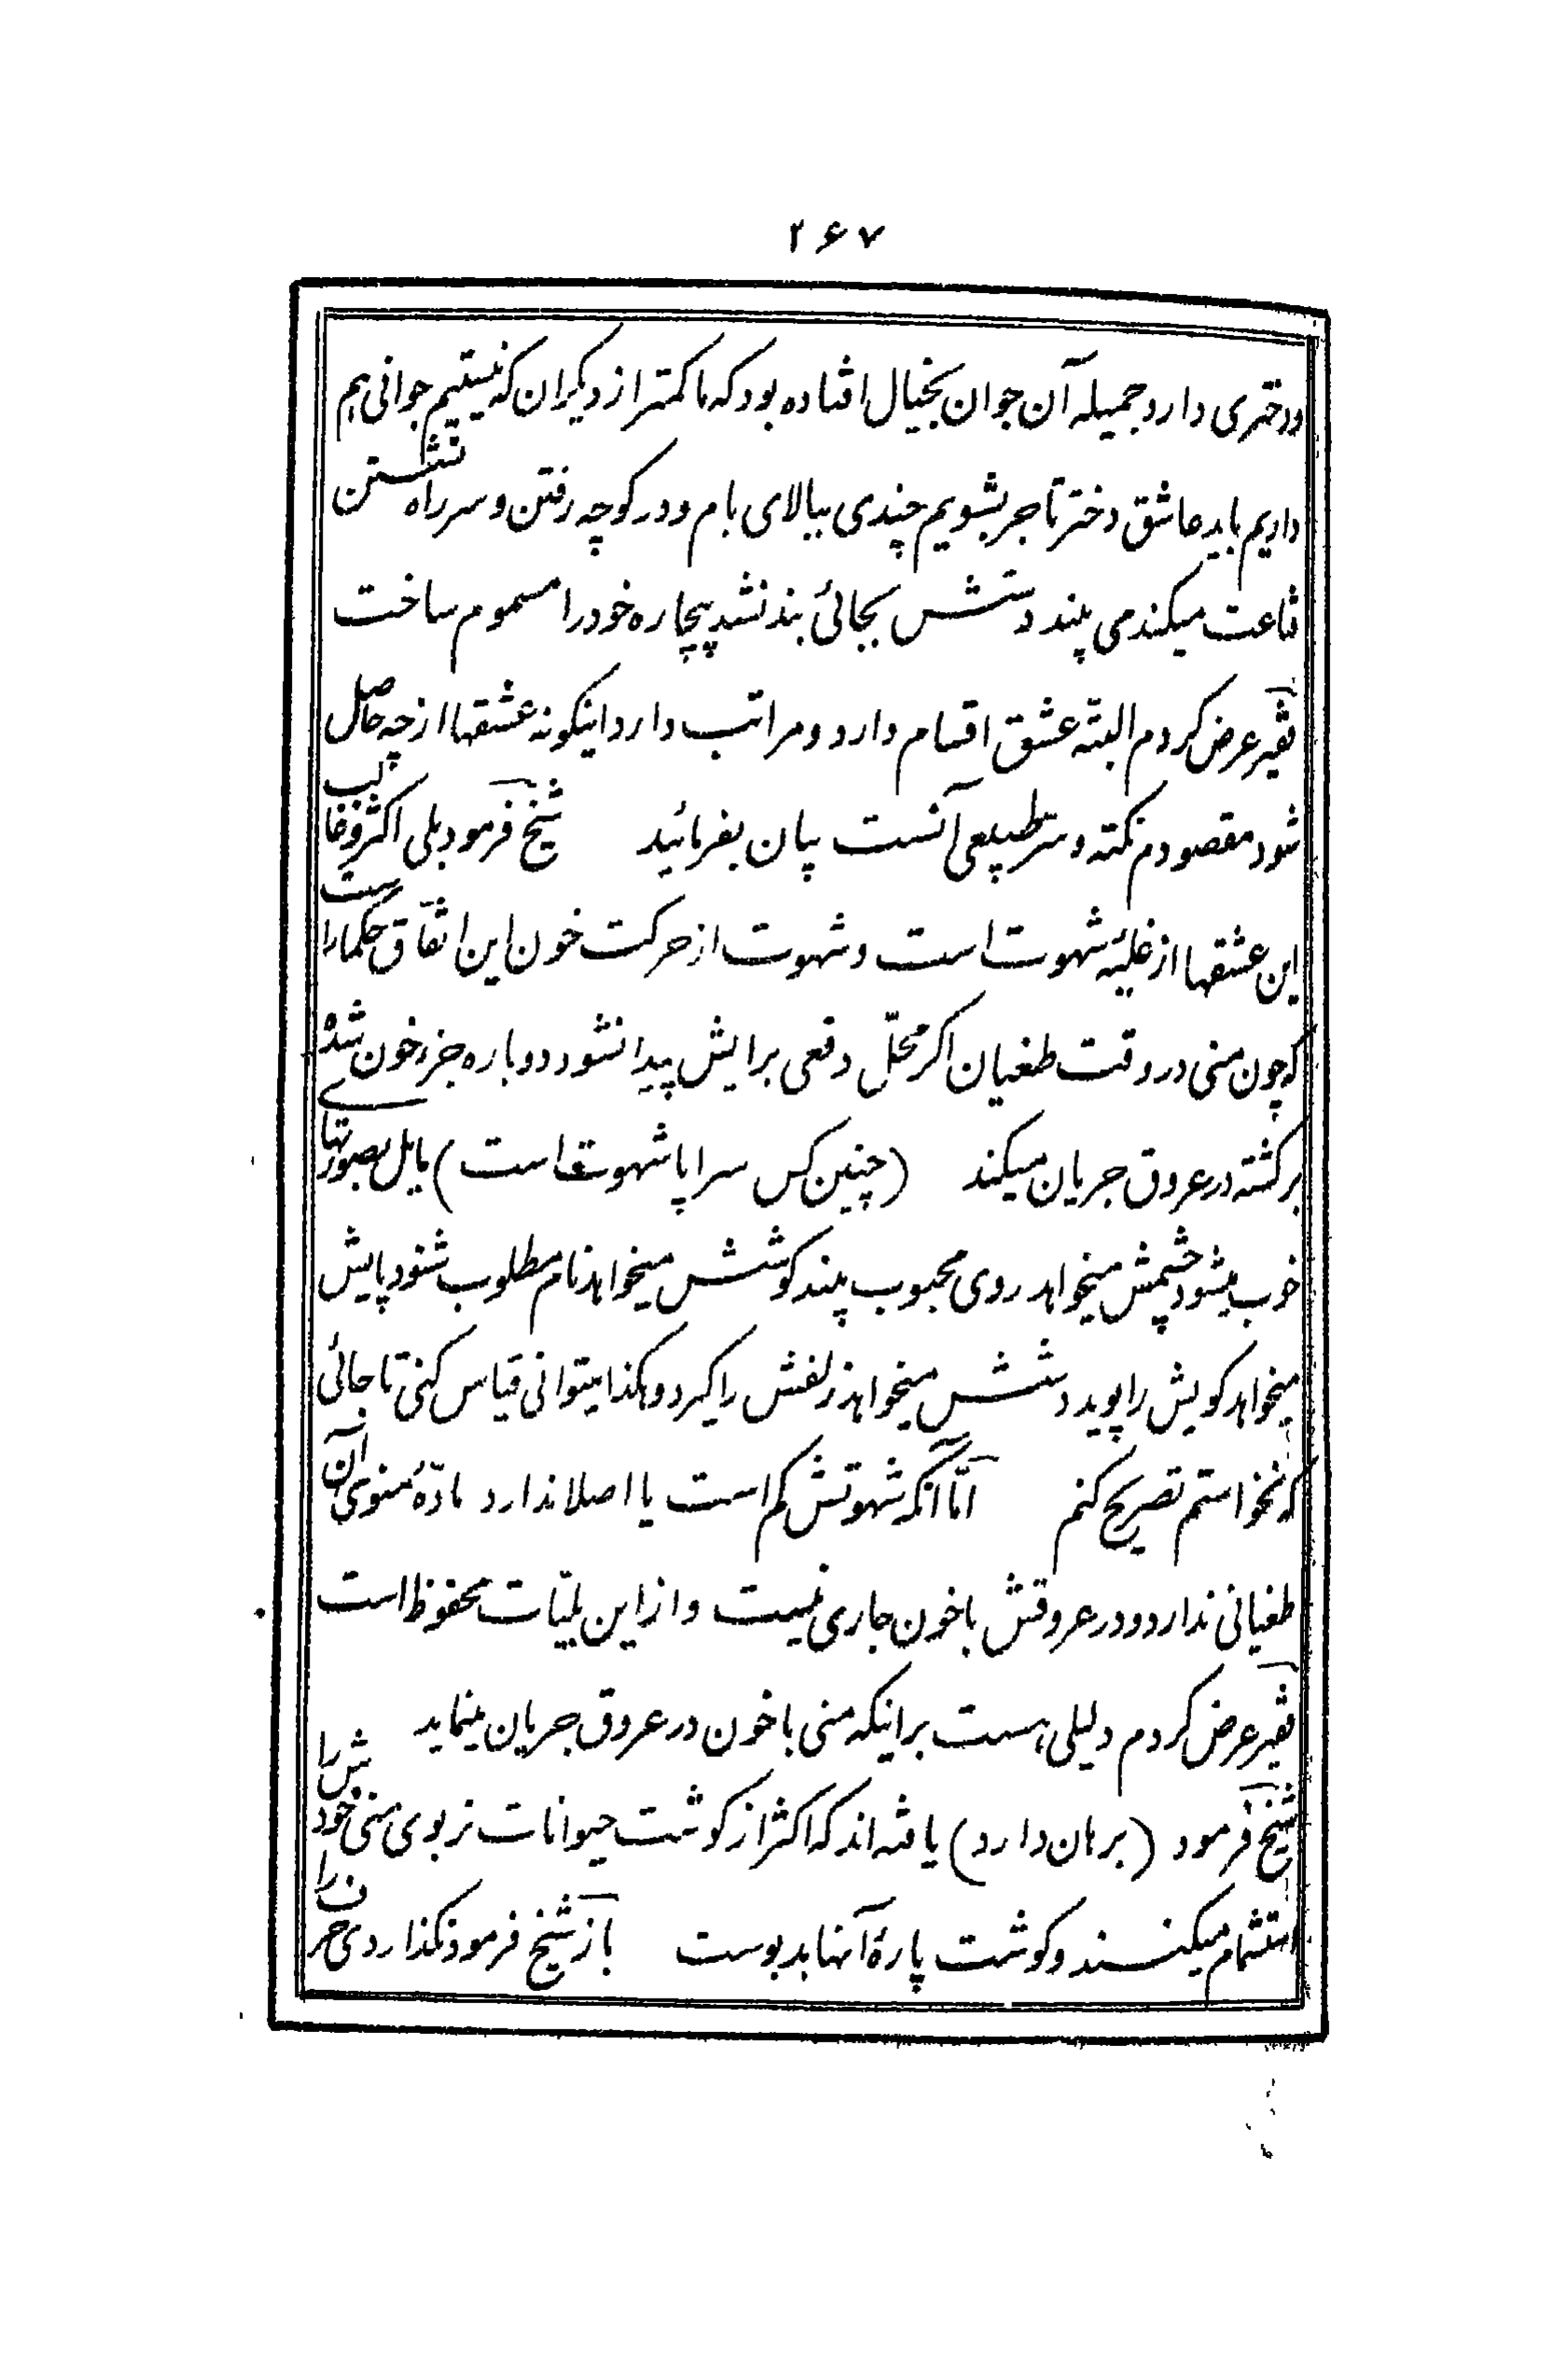 ۲۶۷
ودختری دارد جمیله آن جوان بخیال افتاده بود که ما کمتر از دیکران که نیستیم جوانی هم
داریم باید عاشق دختر تاجر بشویم چندی ببالای بام و در کوچه رفتن و سر راه نشستن
قناعت میکند می بیند دستش بجائی بند نشد بیچاره خود را مسموم ساخت
فقیر عرض کردم البته عشق اقسام دارد و مراتب دارد اینکونه عشقها از چه حاصل
شود مقصودم نکته و سرّ طبیعی آنست بیان بفرمائید شیخ فرمود بلی اکثر و غالب
این عشقها از غلبهٔ شهوت است و شهوت از حرکت خون این اتّفاق حکما راست
که چون منی در وقت طغیان اکر محلّ دفعی برایش پیدا نشود دوباره جزء خون شده
برکشته در عروق جریان میکند (چنین کس سراپا شهوت است) مایل بصورتهای
خوب میشود چشمش میخواهد روی محبوب بیند کوشش میخواهد نام مطلوب شنود پایش
میخواهد کویش را پوید دستش میخواهد زلفش را کیرد و هکذا میتوانی قیاس کنی تا جائی
که نخواستم تصریح کنم امّا آنکه شهوتش کم است یا اصلا ندارد مادّهٔ منوی آن
طغیانی ندارد و در عروقش با خون جاری نیست و از این بلیّات محفوظ است
فقیر عرض کردم دلیلی هست بر اینکه منی با خون در عروق جریان مینماید
شیخ فرمود (برهان دارد) یافته اند که اکثر از کوشت حیوانات نر بوی منی خودش را
استشمام میکنند و کوشت پارهٔ آنها بد بوست باز شیخ فرمود نکذاردی حرفمان را